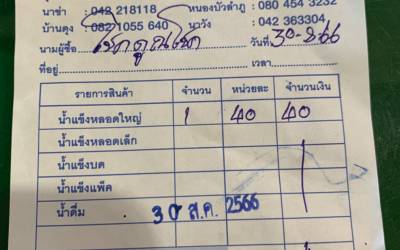 นาข่า : 042 218118 หนองบัวลำภู : 080 454 3232
บ้านดุง : 0821055 640 นาวัง : 042 363304
นามผู้ซื้อ โชคคูณโชค วันที่ 30-8-66
ที่อยู่ เวลา
รายการสินค้า จำนวน หน่วยละ จำนวนเงิน
น้ำแข็งหลอดใหญ่ 1 40 40
น้ำแข็งหลอดเล็ก
น้ำแข็งบด
น้ำแข็งแพ็ค
น้ำดื่ม
30 ส.ค. 2566